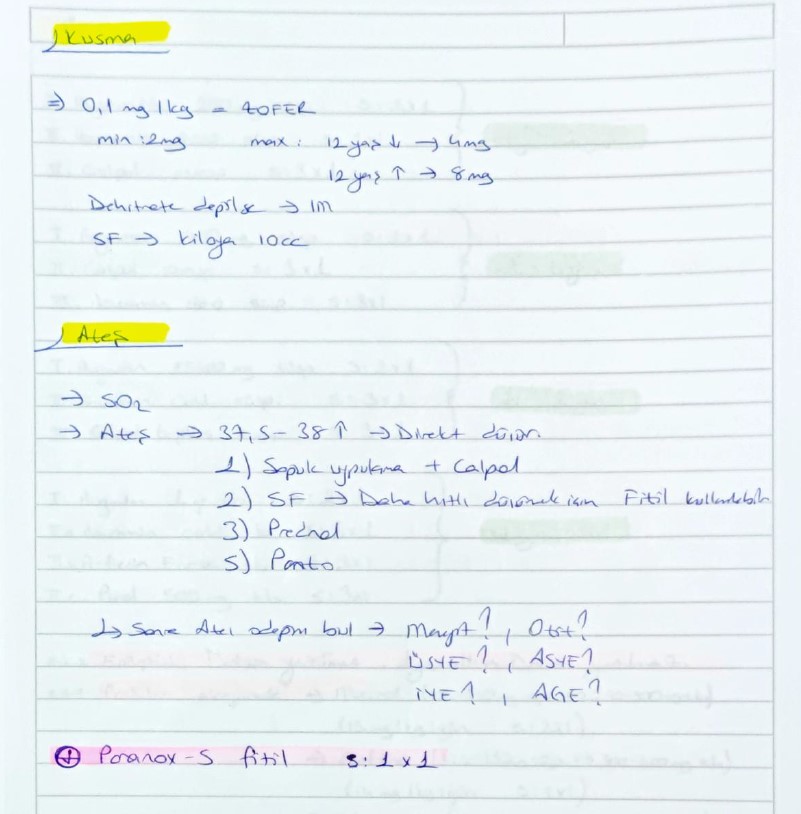 Kusma
⇒ 0,1 mg/kg = ZOFER
min: 2mg max: 12 yaş ↓ → 4mg
12 yaş ↑ → 8 mg
Dehitrate değilse → IM
SF → kiloya 10cc
Ateş
→ SO2
→ Ateş → 37,5-38 ↑ → Direkt düşür
1) Soğuk uygulama + Calpol
2) SF → Daha hızlı düşürmek için Fitil kullanılabilir
3) Prednol
5) Panto
↳ Sonra Ateş odağını bul → Menenjit?, Otit?
ÜSYE?, ASYE?
İYE?, AGE?
⊕ Paranox-S fitil S: 1 x 1